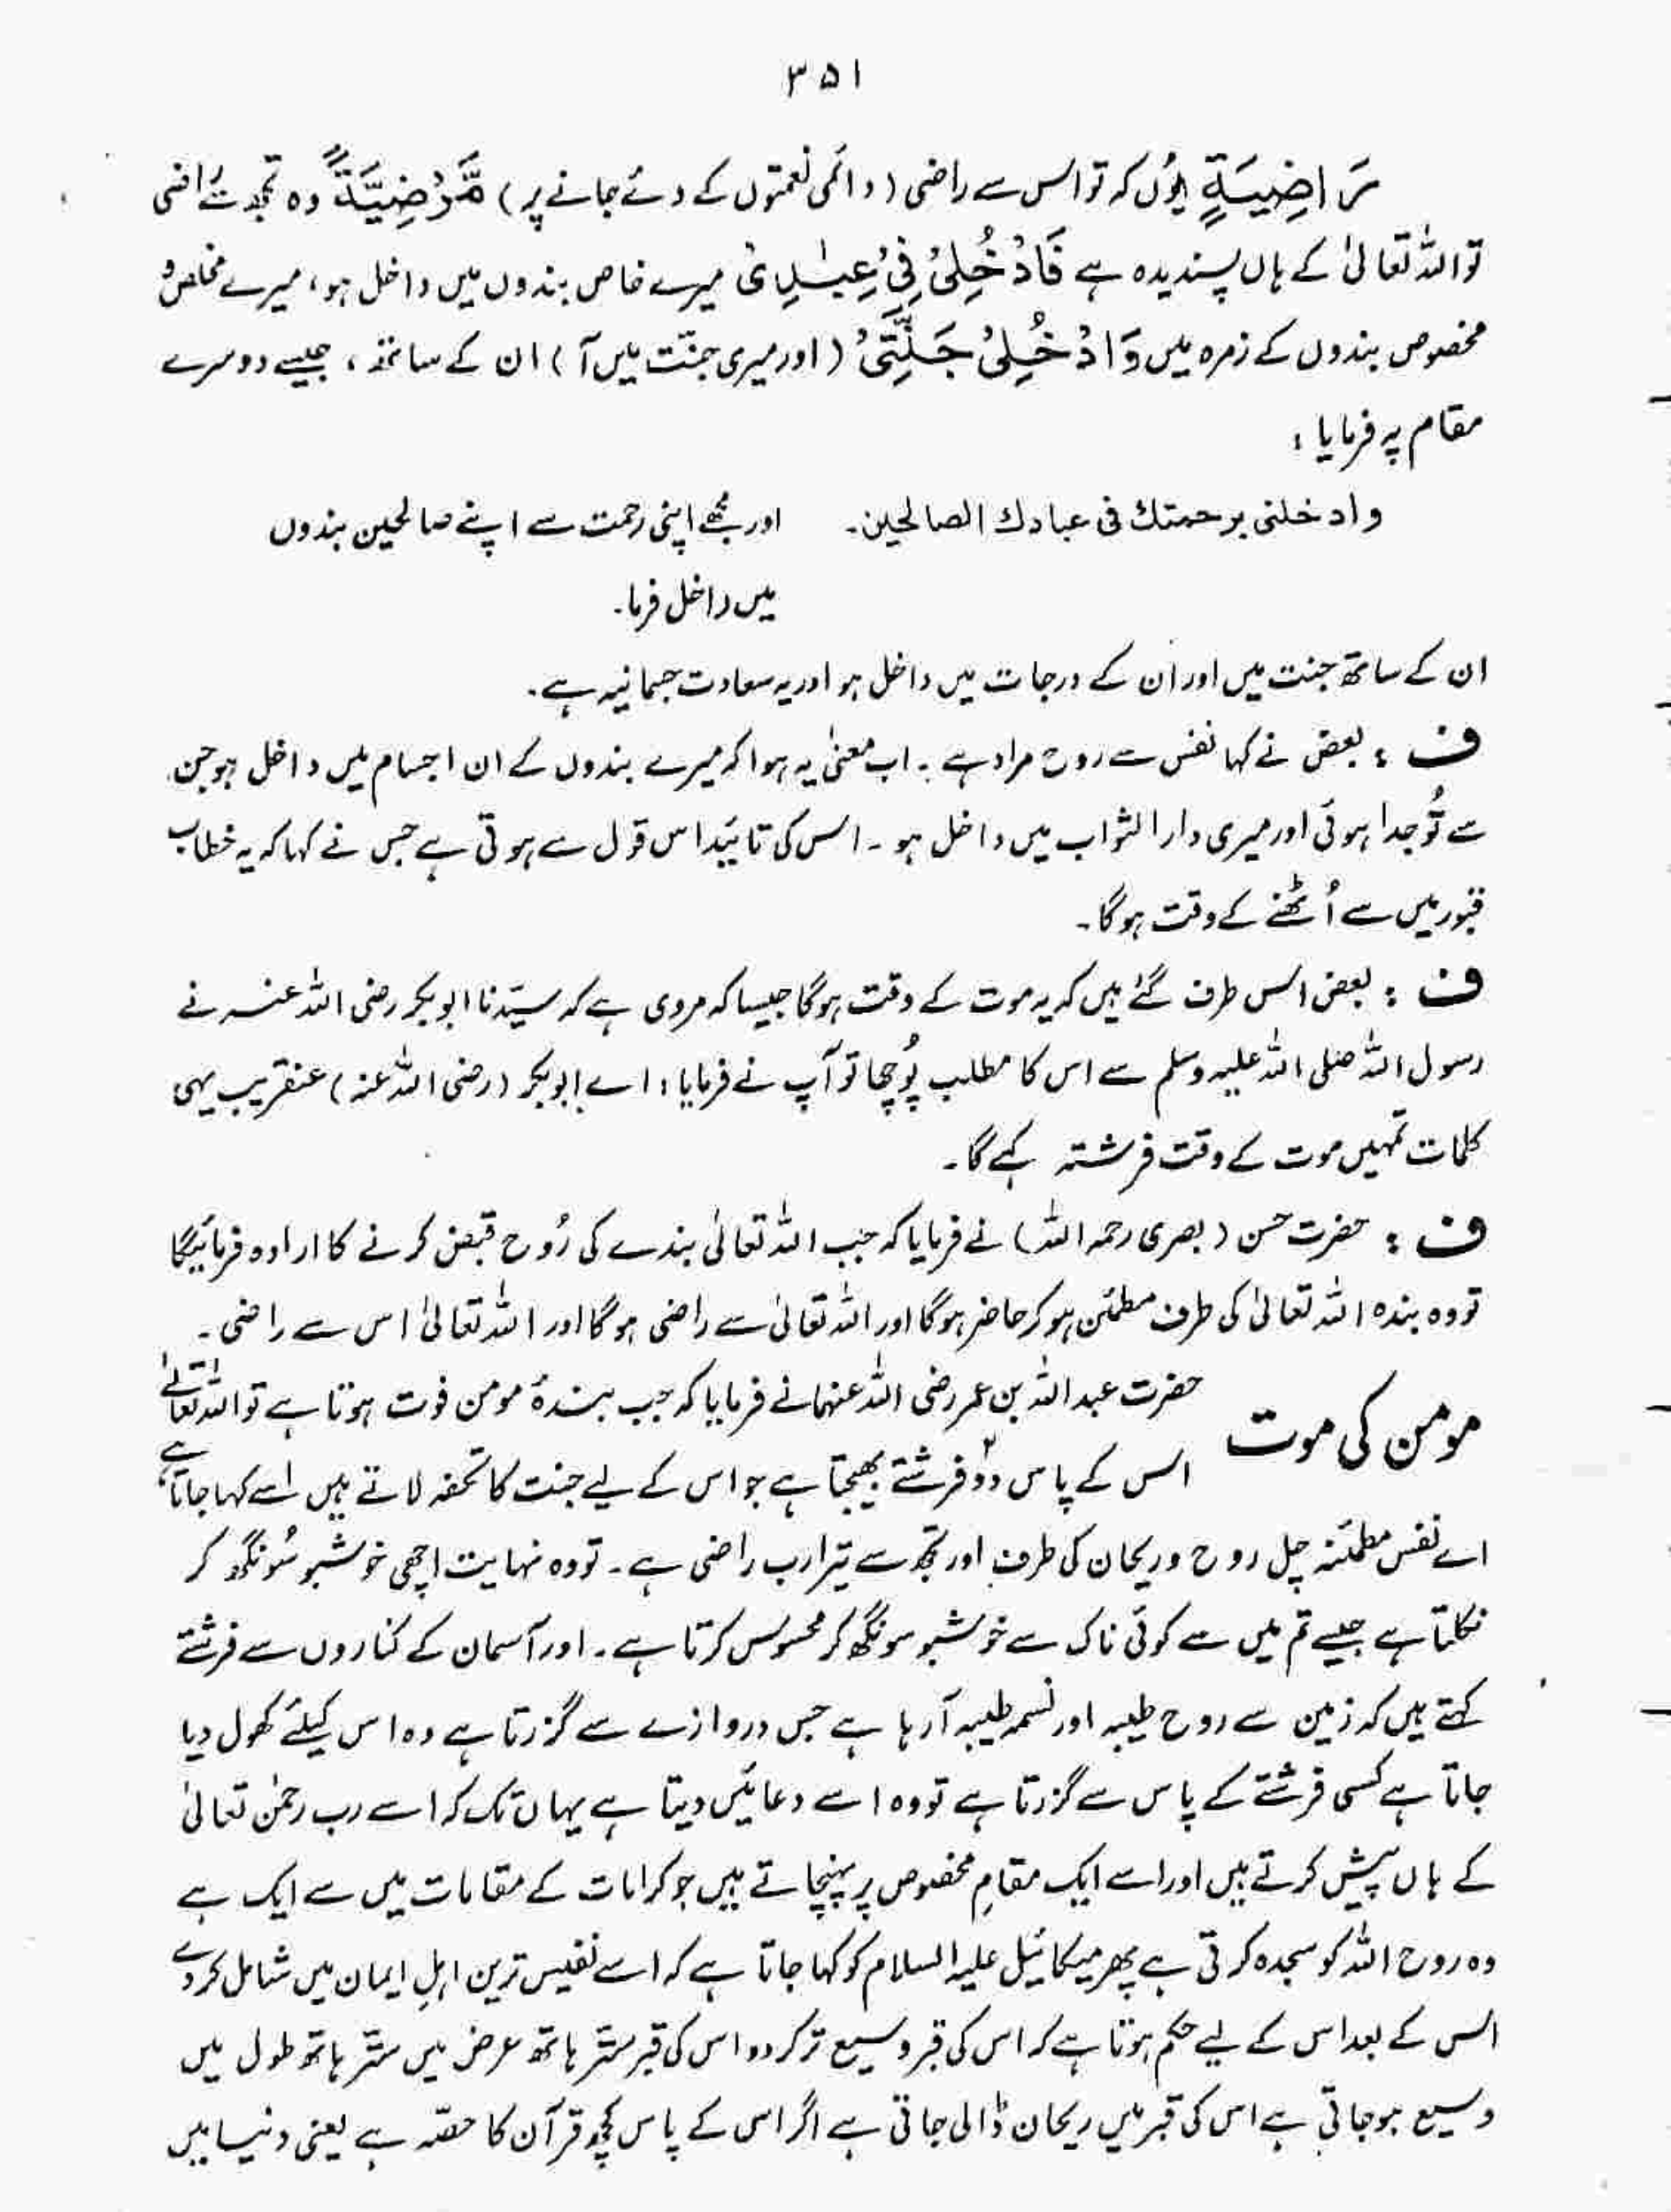 ۳۵۱
رَاضِيَةٍ یوں کہ تو اس سے راضی (دائمی نعمتوں کے دئے جانے پر) مَّرْضِيَّةً وہ تجھ سے راضی
تو اللہ تعالیٰ کے ہاں پسندیدہ ہے فَادْخُلِیْ فِیْ عِبٰدِیْ میرے خاص بندوں میں داخل ہو، میرے مخلص و
مخصوص بندوں کے زمرہ میں وَادْخُلِیْ جَنَّتِیْ (اور میری جنّت میں آ) ان کے ساتھ، جیسے دوسرے
مقام پر فرمایا:
وادخلنی برحمتك فی عبادك الصالحین۔ اور مجھے اپنی رحمت سے اپنے صالحین بندوں
میں داخل فرما۔
ان کے ساتھ جنت میں اور ان کے درجات میں داخل ہو اور یہ سعادت جسمانیہ ہے۔
ف : بعض نے کہا نفس سے روح مراد ہے۔ اب معنیٰ یہ ہوا کہ میرے بندوں کے ان اجسام میں داخل ہو جن
سے تُو جدا ہوئی اور میری دار الثواب میں داخل ہو۔ اس کی تائید اس قول سے ہوتی ہے جس نے کہا کہ یہ خطاب
قبور میں سے اُٹھنے کے وقت ہوگا۔
ف : بعض اس طرف گئے ہیں کہ یہ موت کے وقت ہوگا جیسا کہ مروی ہے کہ سیّدنا ابوبکر رضی اللہ عنہ نے
رسول اللہ صلی اللہ علیہ وسلم سے اس کا مطلب پُوچھا تو آپ نے فرمایا: اے ابوبکر (رضی اللہ عنہ) عنقریب یہی
کلمات تمہیں موت کے وقت فرشتہ کہے گا۔
ف : حضرت حسن (بصری رحمہ اللہ) نے فرمایا کہ جب اللہ تعالیٰ بندے کی رُوح قبض کرنے کا ارادہ فرمائیگا
تو وہ بندہ اللہ تعالیٰ کی طرف مطمئن ہو کر حاضر ہوگا اور اللہ تعالیٰ سے راضی ہوگا اور اللہ تعالیٰ اس سے راضی۔
مومن کی موت حضرت عبداللہ بن عمر رضی اللہ عنہما نے فرمایا کہ جب بندۂ مومن فوت ہوتا ہے تو اللہ تعالےٰ
اس کے پاس دو فرشتے بھیجتا ہے جو اس کے لیے جنت کا تحفہ لاتے ہیں اسے کہا جاتا ہے
اے نفس مطمئنہ چل روح و ریحان کی طرف اور تجھ سے تیرا رب راضی ہے۔ تو وہ نہایت اچھی خوشبو سُونگھ کر
نکلتا ہے جیسے تم میں سے کوئی ناک سے خوشبو سونگھ کر محسوس کرتا ہے۔ اور آسمان کے کناروں سے فرشتے
کہتے ہیں کہ زمین سے روح طیبہ اور نسمہ طیبہ آرہا ہے جس دروازے سے گزرتا ہے وہ اس کیلئے کھول دیا
جاتا ہے کسی فرشتے کے پاس سے گزرتا ہے تو وہ اسے دعائیں دیتا ہے یہاں تک کہ اسے رب رحمٰن تعالیٰ
کے ہاں پیش کرتے ہیں اور اسے ایک مقامِ مخصوص پر پہنچاتے ہیں جو کرامات کے مقامات میں سے ایک ہے
وہ روح اللہ کو سجدہ کرتی ہے پھر میکائیل علیہ السلام کو کہا جاتا ہے کہ اسے نفیس ترین اہلِ ایمان میں شامل کردے
اس کے بعد اس کے لیے حکم ہوتا ہے کہ اس کی قبر وسیع تر کردو اس کی قبر ستّر ہاتھ عرض میں ستّر ہاتھ طول میں
وسیع ہوجاتی ہے اس کی قبر میں ریحان ڈالی جاتی ہے اگر اس کے پاس کچھ قرآن کا حصّہ ہے یعنی دنیا میں